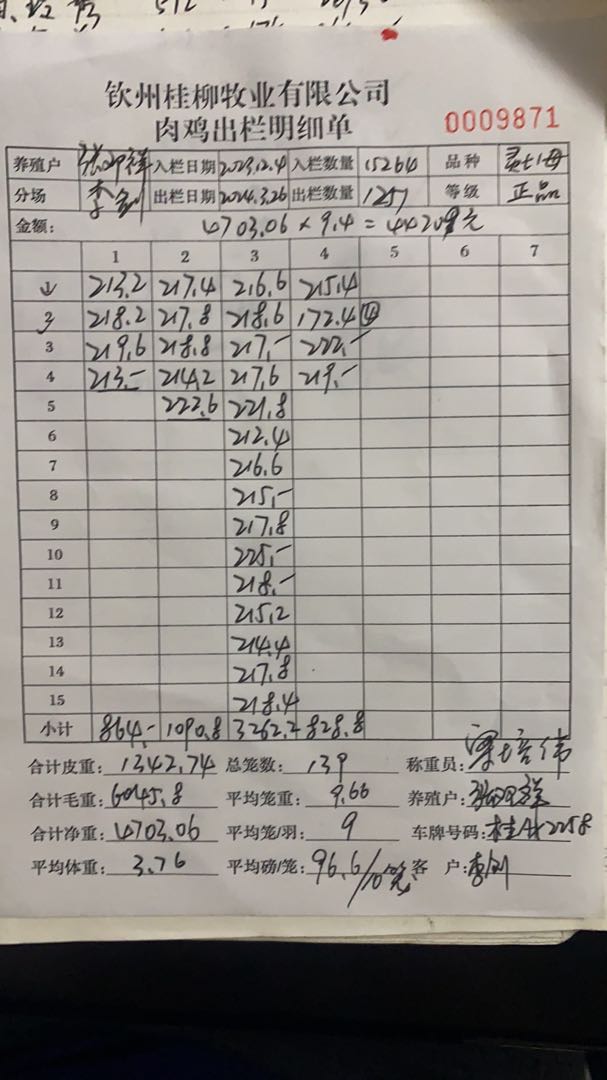 钦州桂柳牧业有限公司
肉鸡出栏明细单 0009871
养殖户 入栏日期 2023.12.4 入栏数量 15264 品种
分场 李剑 出栏日期 2024.3.26 出栏数量 1251 等级 正品
金额: 4703.06 × 9.4 = 44209元
1 2 3 4 5 6 7
1 213.2 217.4 216.6 215.4
2 218.2 217.8 218.6 172.4 ④
3 219.6 218.8 217.- 222.-
4 213.- 214.2 217.6 219.-
5 222.6 221.8
6 212.4
7 216.6
8 215.-
9 217.8
10 225.-
11 218.-
12 215.2
13 214.4
14 217.8
15 218.4
小计 864.- 1090.8 3262.2 828.8
合计皮重: 1342.74 总笼数: 139 称重员: 培伟
合计毛重: 6045.8 平均笼重: 9.66 养殖户:
合计净重: 4703.06 平均笼/羽: 9 车牌号码: 桂
平均体重: 3.76 平均磅/笼: 96.6/10笼 客户: 李剑